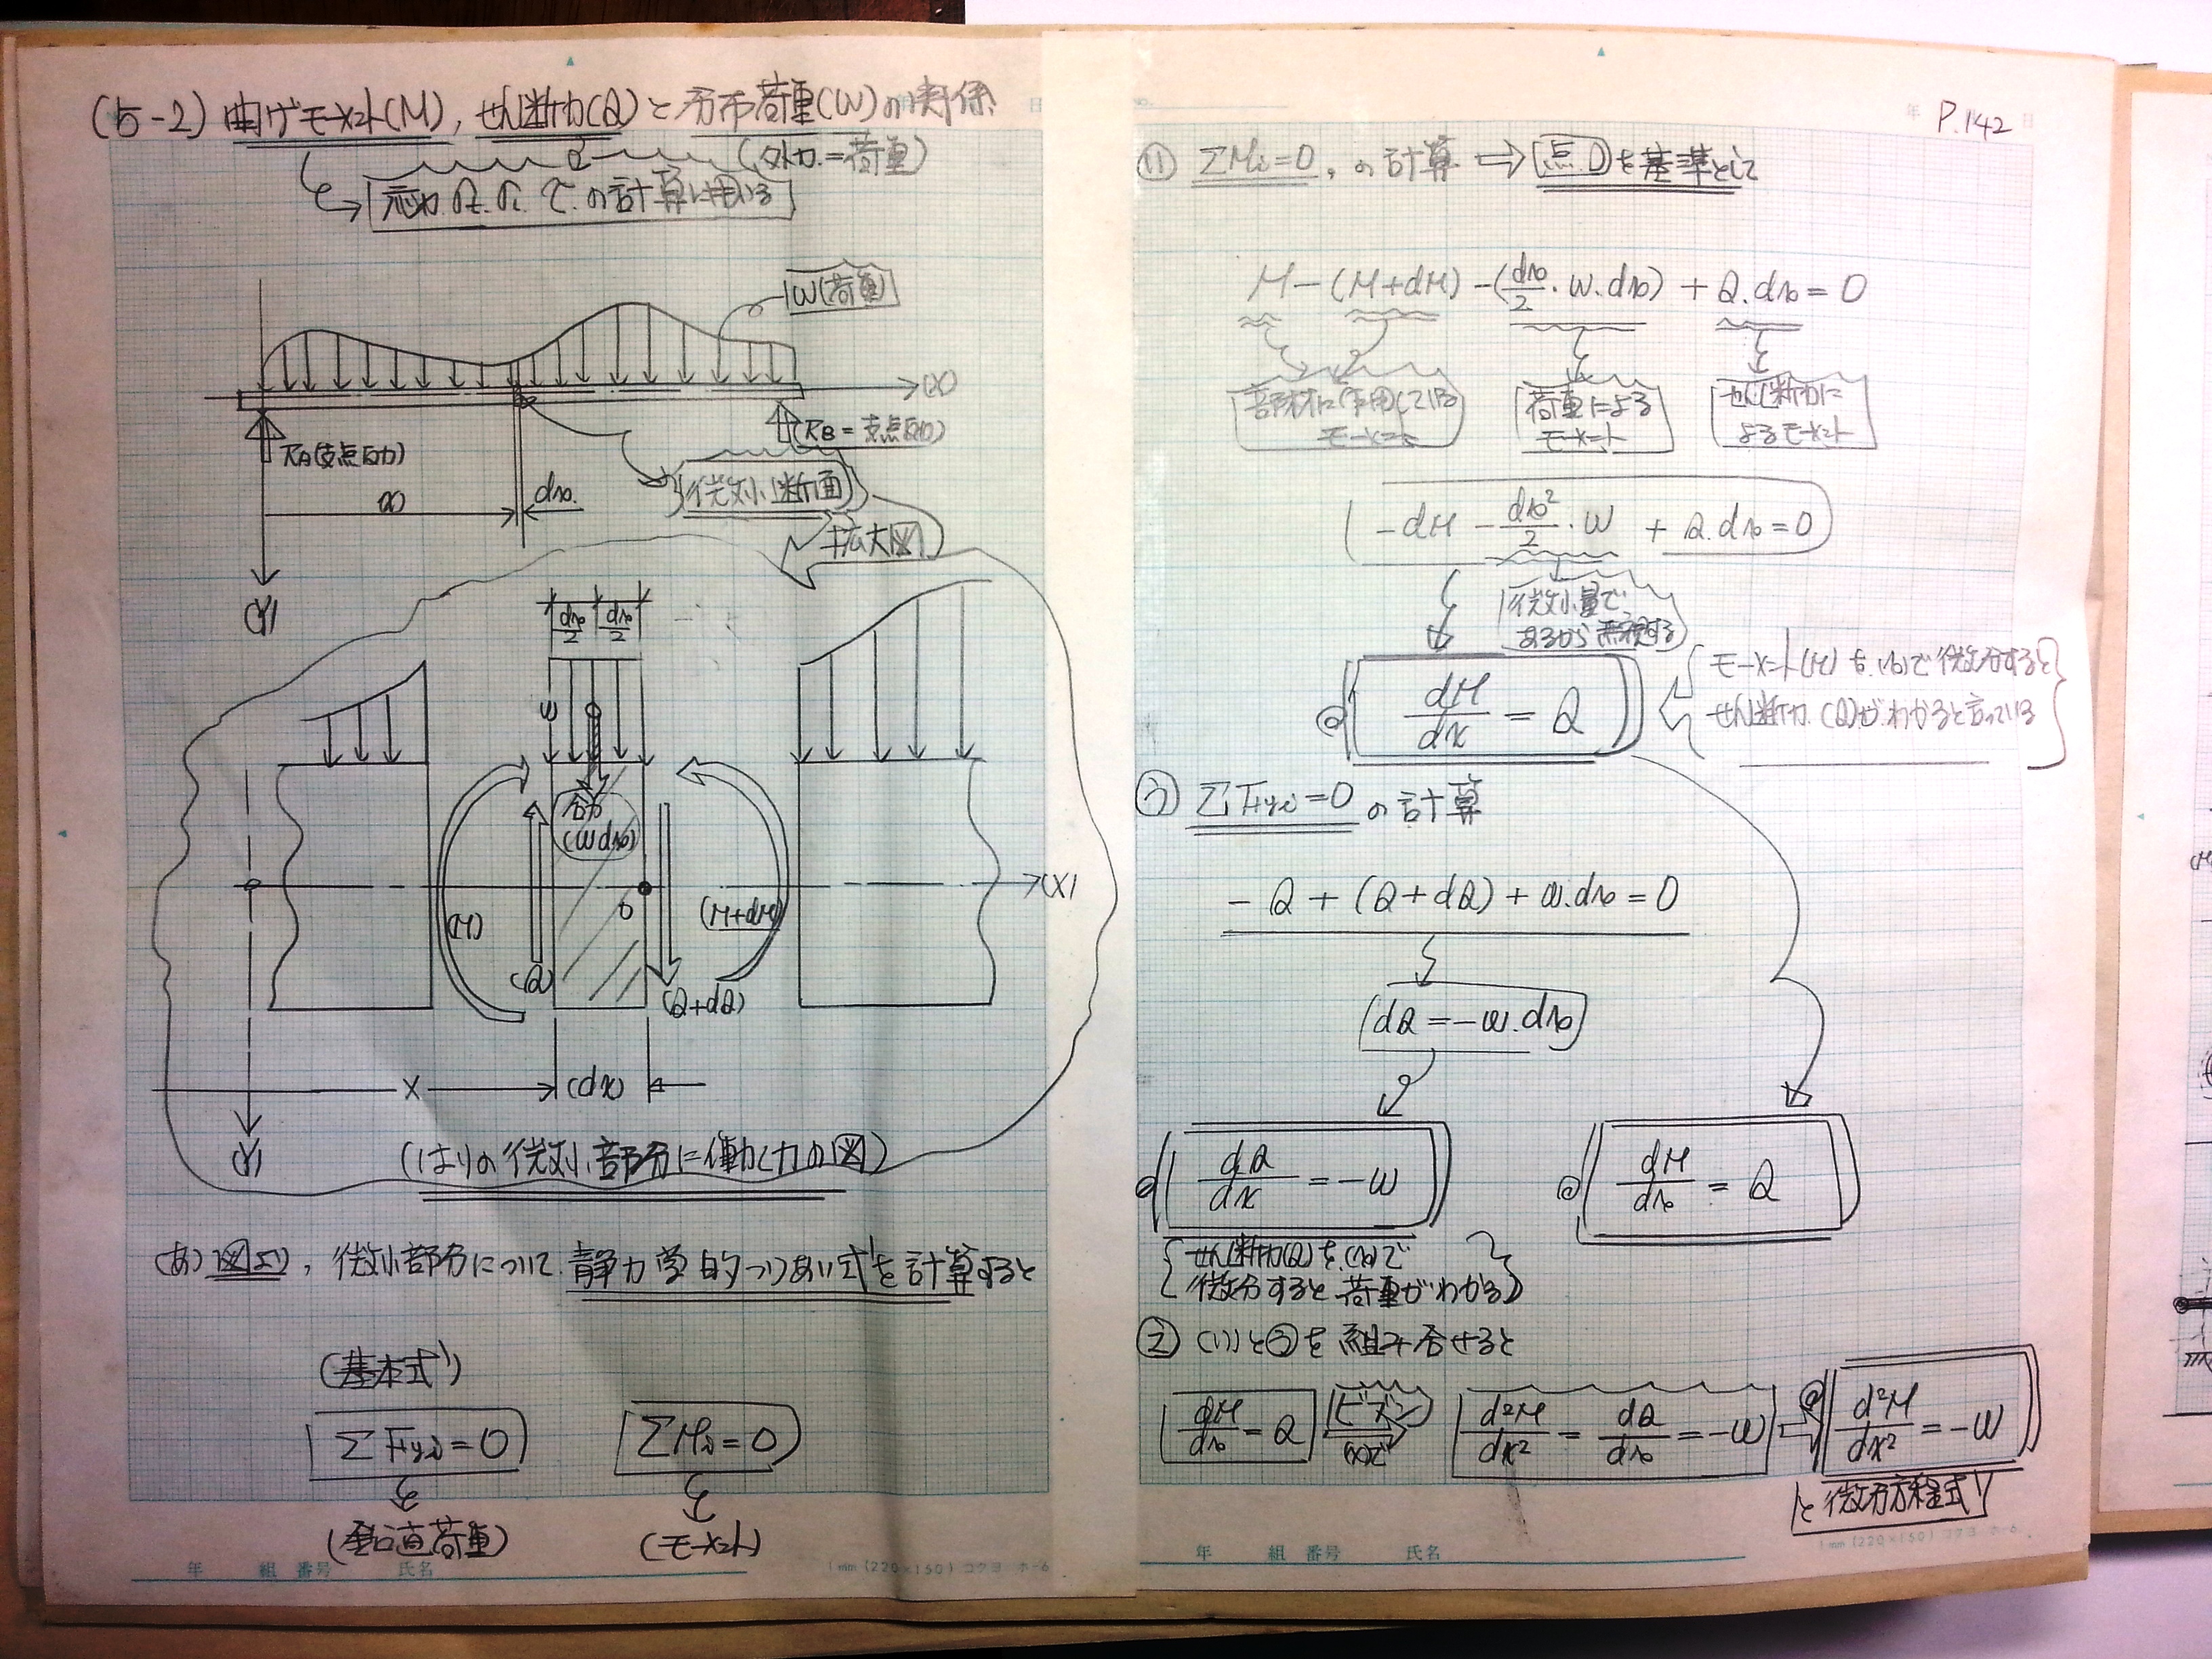 (5-2) 曲げモーメント(M), せん断力(Q)と分布荷重(W)の関係
(外力=荷重)
応力 σt. σc. τ. の計算に用いる
W(荷重)
(X)
RA(支点反力)
(RB=支点反力)
x
dx.
微小断面
拡大図
(Y)
dx/2 dx/2
w
合力
(wdx)
(X)
(M)
O
(M+dM)
(Q)
(Q+dQ)
x
(dx)
(Y)
(はりの微小部分に働く力の図)
(あ) 図より, 微小部分について 静力学的つりあい式を計算すると
(基本式)
ΣFyi=0
ΣMi=0
(鉛直荷重)
(モーメント)
年 組 番号 氏名
1mm (220×150) コクヨ ホ-6
年 P.142 日
(い) ΣMi=0, の計算 ⇒ 点Oを基準として
M-(M+dM)-(dx/2・w.dx)+Q.dx=0
部材に作用している
モーメント
荷重による
モーメント
せん断力に
よるモーメント
-dM-dx²/2・w+Q.dx=0
微小量で,
あるから無視する
dM/dx=Q
モーメント(M)を(x)で微分すると
せん断力(Q)がわかると言っている
(う) ΣFyi=0 の計算
-Q+(Q+dQ)+w.dx=0
dQ=-w.dx
dQ/dx=-w
dM/dx=Q
せん断力(Q)を(x)で
微分すると荷重がわかる
(え) (い)と(う)を組み合せると
dM/dx=Q
ビブン
(x)で
d²M/dx²=dQ/dx=-w
d²M/dx²=-w
と微分方程式
年 組 番号 氏名
1mm (220×150) コクヨ ホ-6